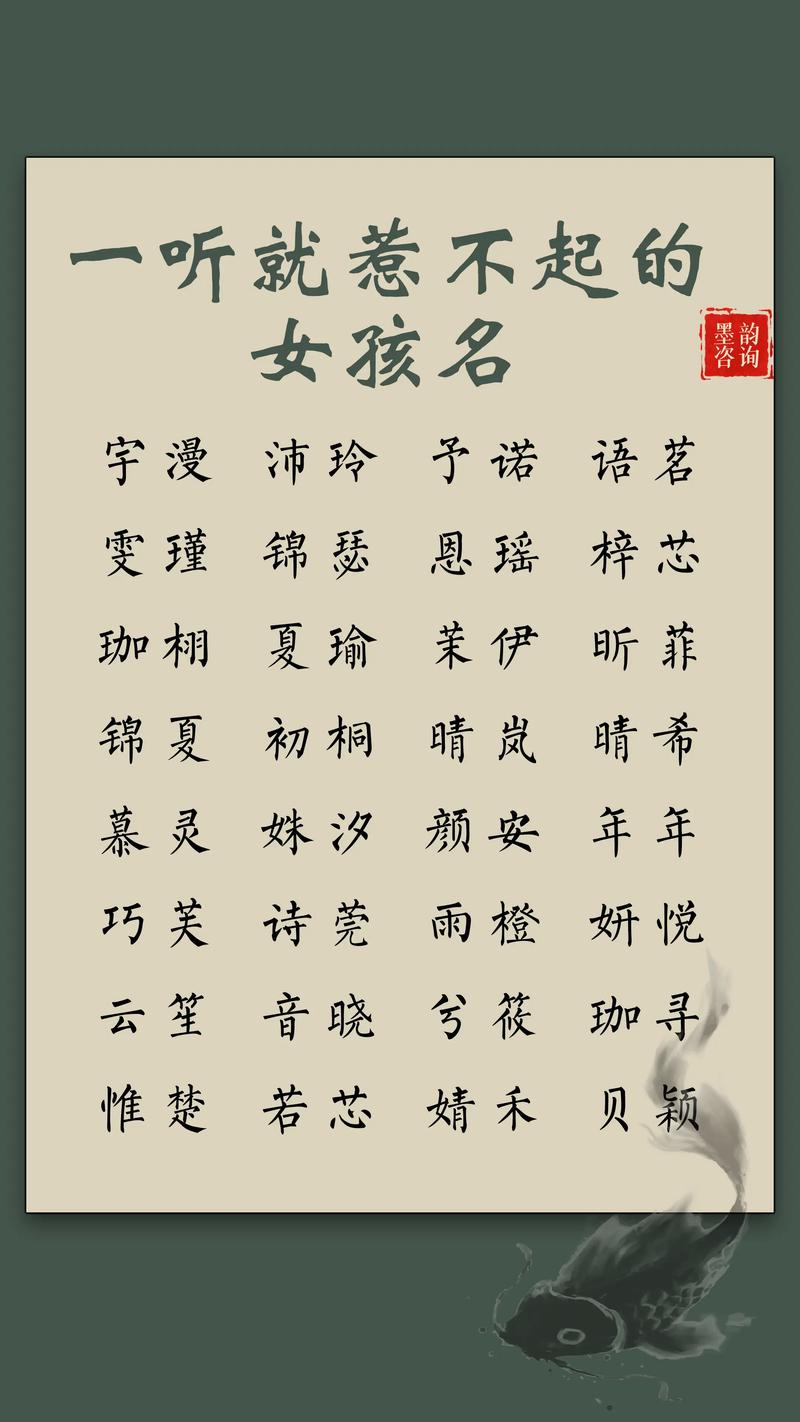 一听就惹不起的
女孩名
墨韵
咨询
宇漫 沛玲 予诺 语茗
雯瑾 锦瑟 恩瑶 梓芯
珈栩 夏瑜 茉伊 昕菲
锦夏 初桐 晴岚 晴希
慕灵 姝汐 颜安 年年
巧芙 诗莞 雨橙 妍悦
云笙 音晓 兮筱 珈寻
惟楚 若芯 婧禾 贝颖